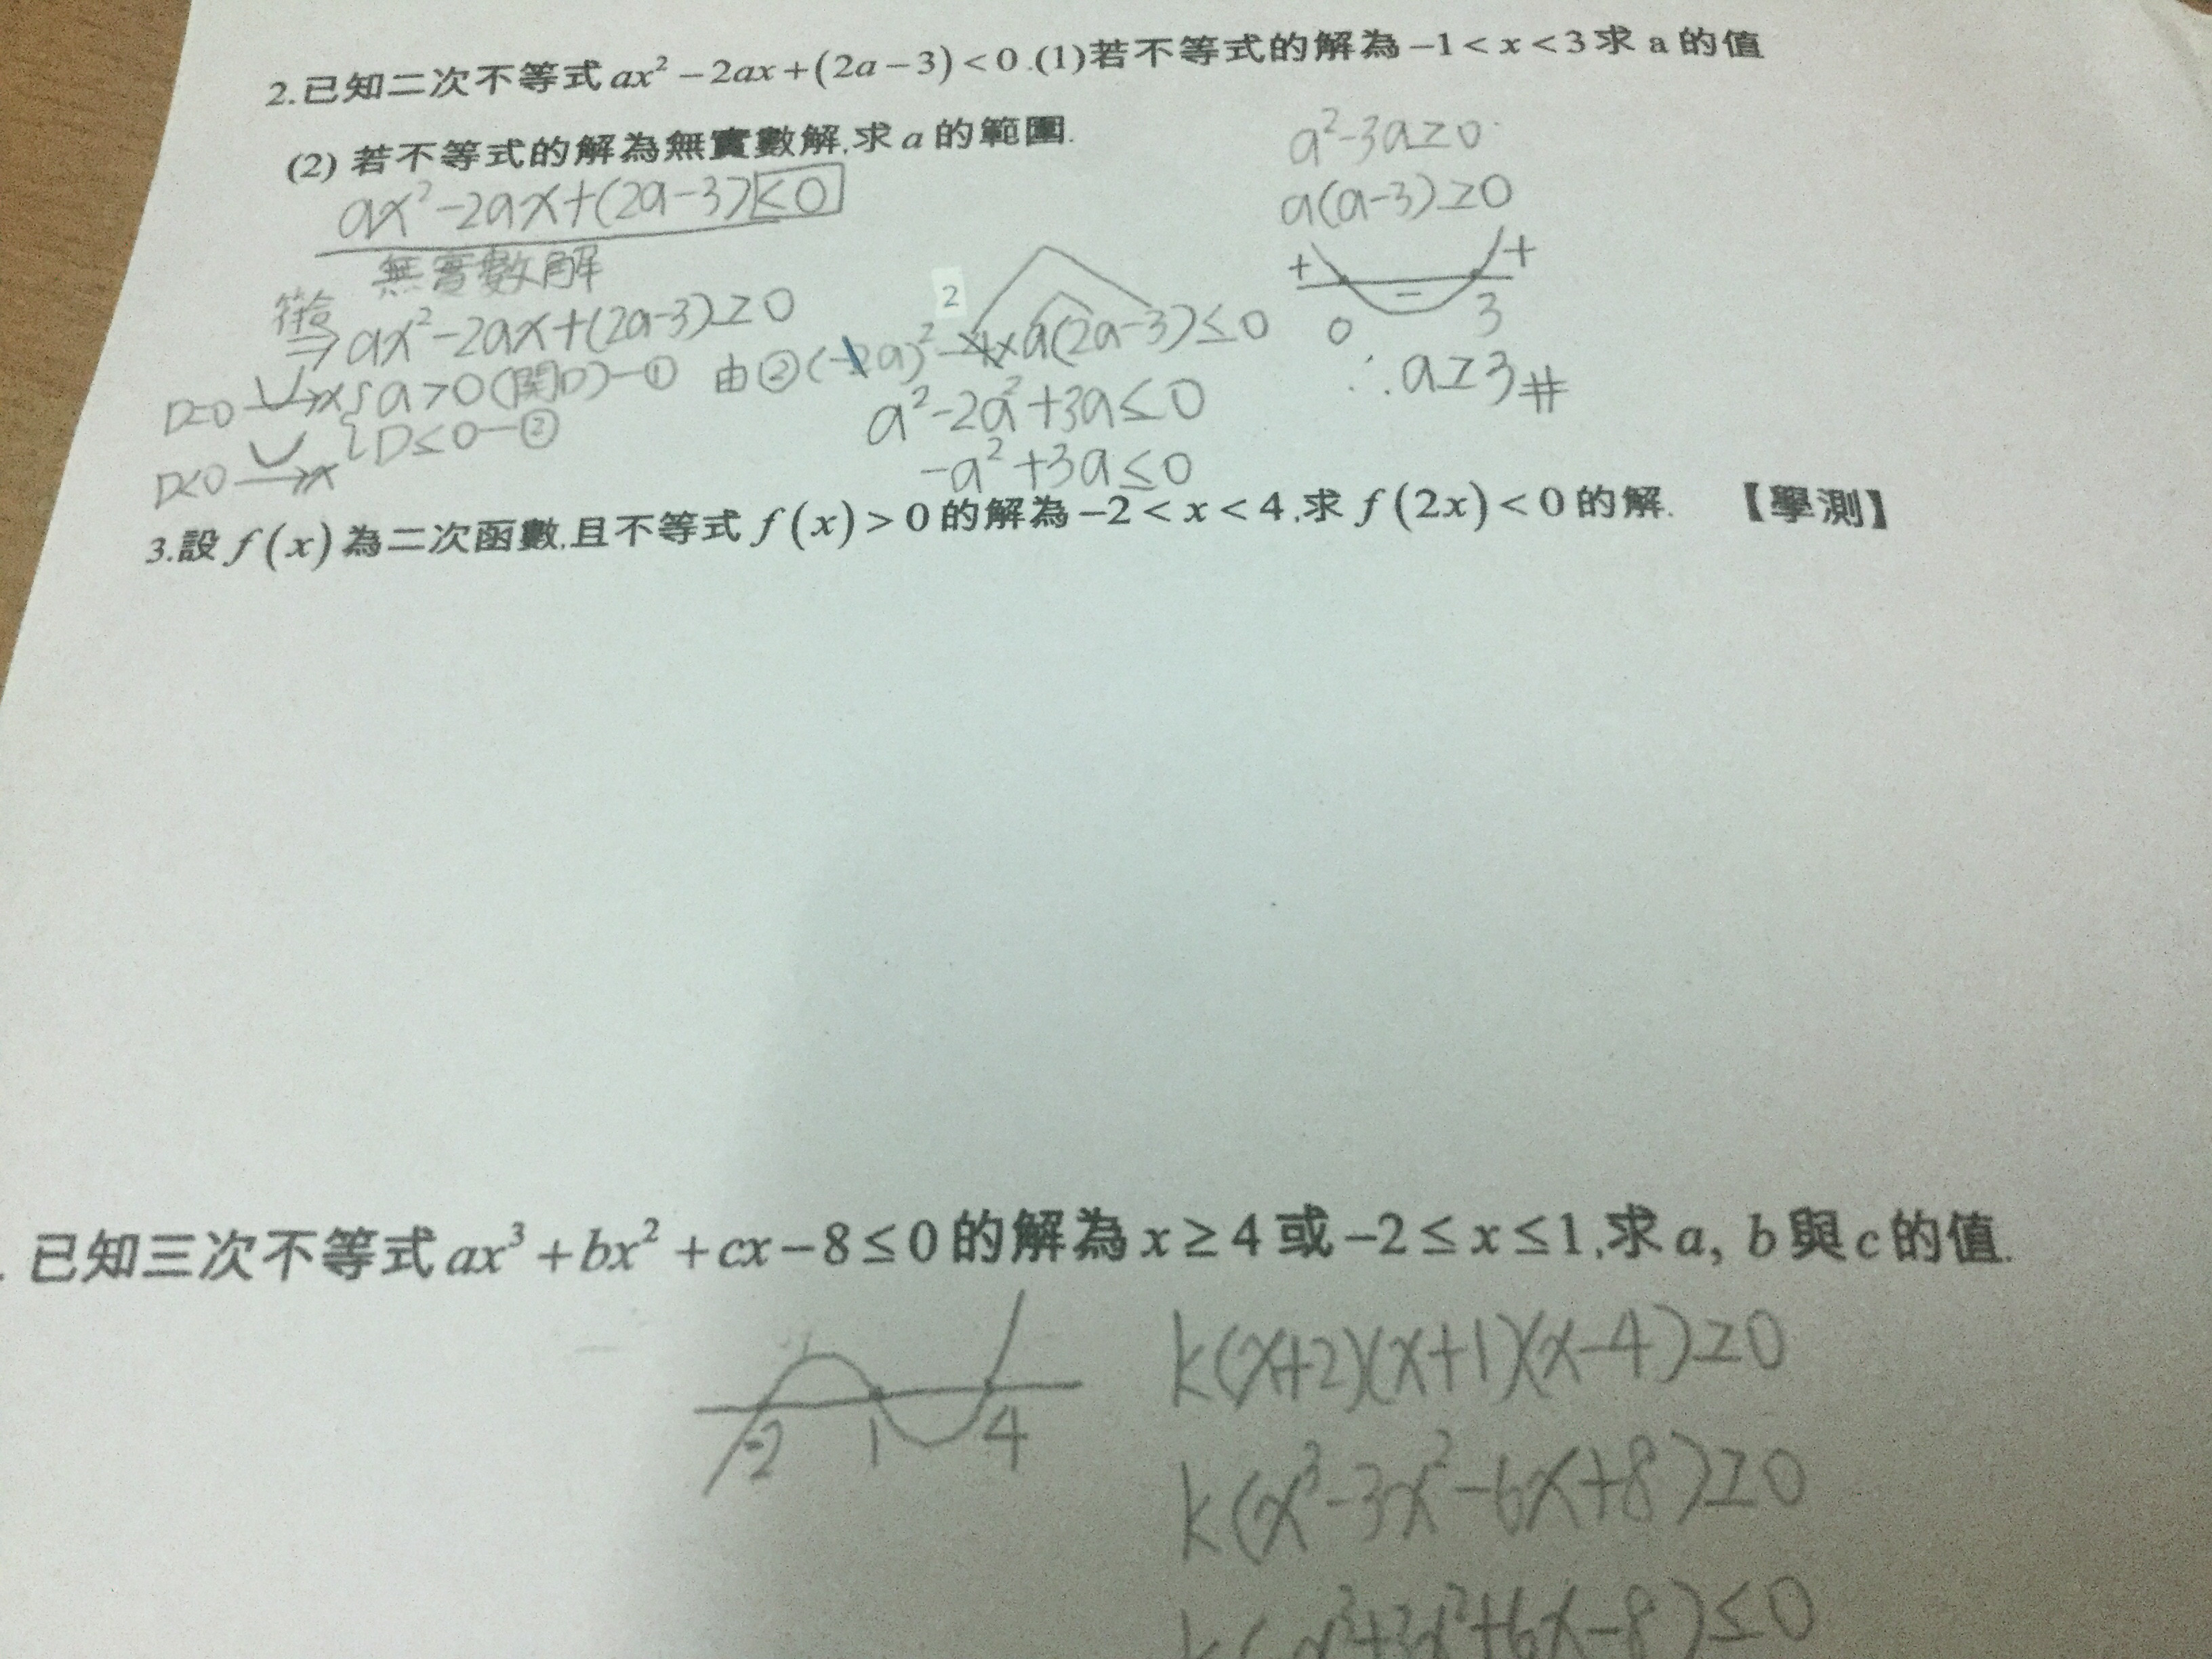 2.已知二次不等式ax²−2ax+(2a−3)<0.(1)若不等式的解為−1<x<3求a的值
(2) 若不等式的解為無實數解,求a的範圍.
ax²-2ax+(2a-3)<0
無實數解
符合
⇒ax²-2ax+(2a-3)≥0
D=0 →x {a>0(開口)—①
D<0 →x {D≤0—②
2
由②(-2a)²-4×a(2a-3)≤0
a²-2a²+3a≤0
-a²+3a≤0
a²-3a≥0
a(a-3)≥0
+ - +
0 3
∴a≥3#
3.設f(x)為二次函數,且不等式f(x)>0的解為−2<x<4,求f(2x)<0的解. 【學測】
. 已知三次不等式ax³+bx²+cx−8≤0的解為x≥4或−2≤x≤1,求a, b與c的值.
-2 1 4
k(x+2)(x+1)(x-4)≥0
k(x³-3x²-6x+8)≥0
k(-x³+3x²+6x-8)≤0